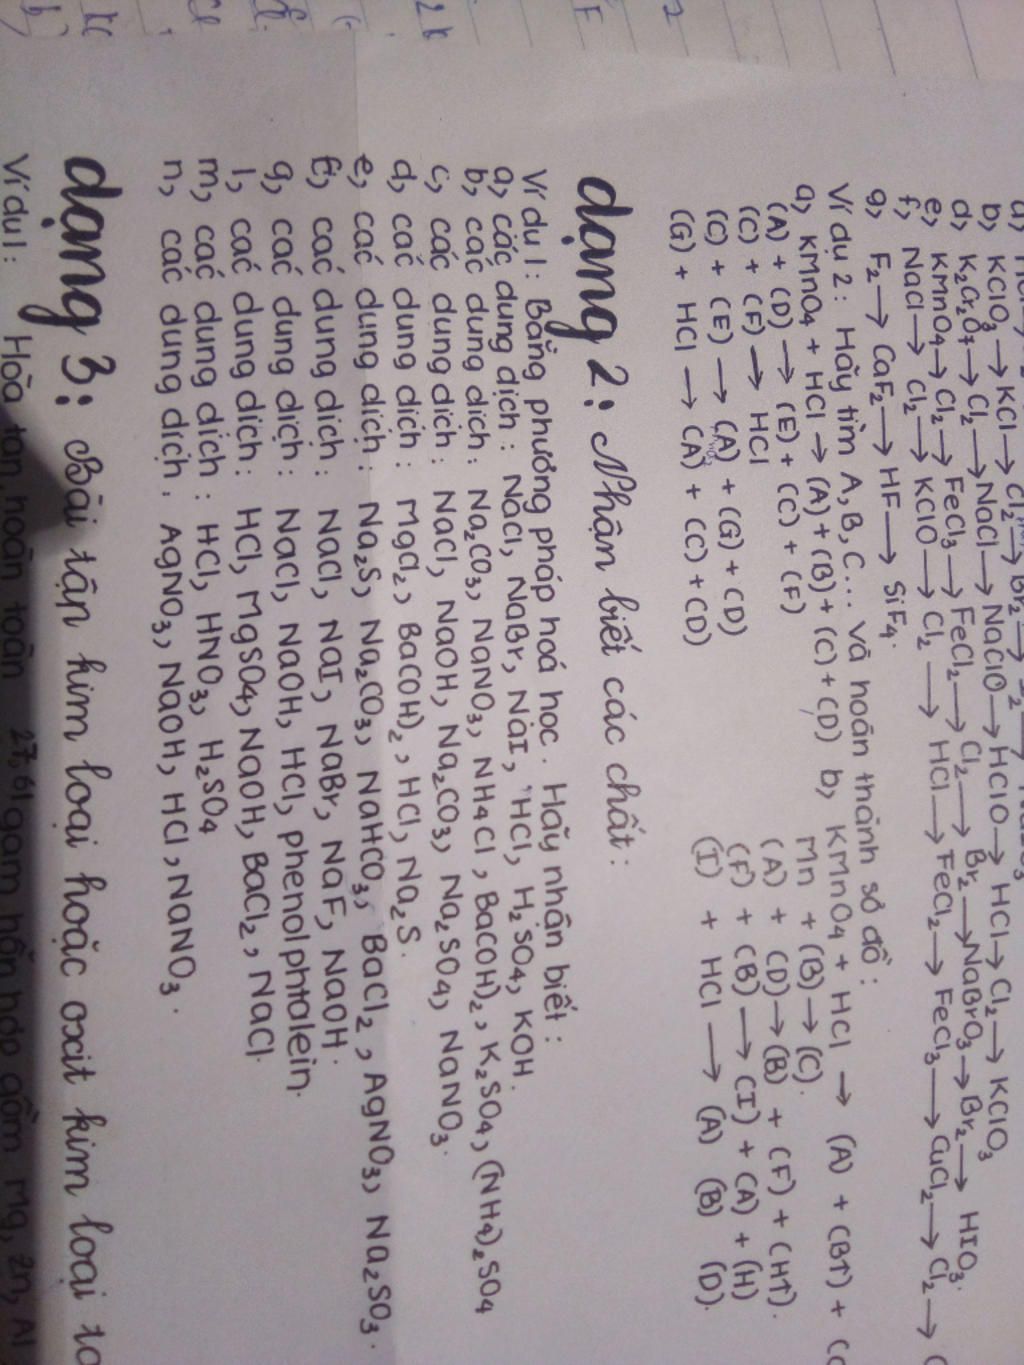 b, KClO3 → KCl → Cl2 → Br2 →
d, K2Cr2O7 → Cl2 → NaCl → NaClO → HClO → HCl → Cl2 → KClO3
e, KMnO4 → Cl2 → FeCl3 → FeCl2 → Cl2 → Br2 → NaBrO3 → Br2 → HIO3.
f, NaCl → Cl2 → KClO → Cl2 → HCl → FeCl2 → FeCl3 → CuCl2 → Cl2 →
g, F2 → CaF2 → HF → SiF4.
Ví dụ 2: Hãy tìm A, B, C... và hoàn thành sơ đồ:
a, KMnO4 + HCl → (A) + (B) + (C) + (D)
(A) + (D) → (E) + (C) + (F)
(C) + (F) → HCl
(C) + (E) → (A) + (G) + (D)
(G) + HCl → (A) + (C) + (D)
b, KMnO4 + HCl → (A) + (B↑) +
Mn + (B) → (C).
(A) + (D) → (B) + (F) + (H↑).
(F) + (B) → (I) + (A) + (H)
(I) + HCl → (A) (B) (D).
dạng 2: Nhận biết các chất:
Ví dụ 1: Bằng phương pháp hoá học. Hãy nhận biết:
a, các dung dịch: NaCl, NaBr, NaI, HCl, H2SO4, KOH.
b, các dung dịch: Na2CO3, NaNO3, NH4Cl, Ba(OH)2, K2SO4, (NH4)2SO4
c, các dung dịch: NaCl, NaOH, Na2CO3, Na2SO4, NaNO3.
d, các dung dịch: MgCl2, Ba(OH)2, HCl, Na2S.
e, các dung dịch: Na2S, Na2CO3, NaHCO3, BaCl2, AgNO3, Na2SO3.
f, các dung dịch: NaCl, NaI, NaBr, NaF, NaOH.
g, các dung dịch: NaCl, NaOH, HCl, phenolphtalein.
l, các dung dịch: HCl, MgSO4, NaOH, BaCl2, NaCl.
m, các dung dịch: HCl, HNO3, H2SO4
n, các dung dịch: AgNO3, NaOH, HCl, NaNO3.
dạng 3: Bài tập kim loại hoặc oxit kim loại
Ví dụ 1: Hòa tan hoàn toàn 27,61 gam hỗn hợp gồm Mg, Zn, Al